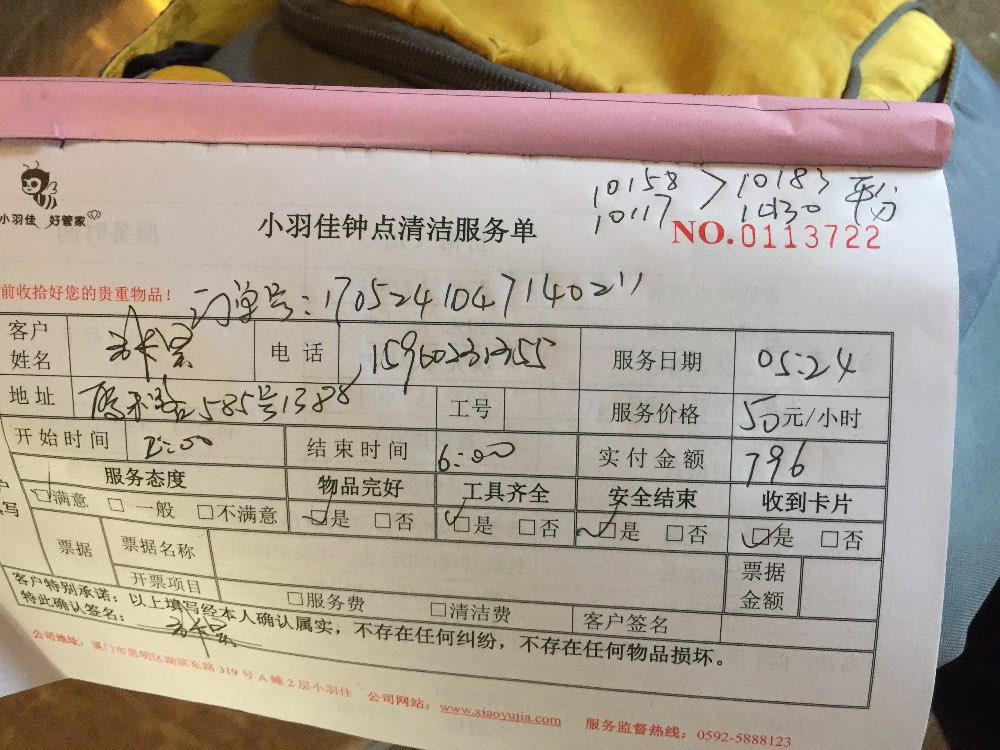 小羽佳 好管家
10158 > 10183 平分
10117 10130
小羽佳钟点清洁服务单
NO.0113722
前收拾好您的贵重物品!
订单号:17052410471402
客户姓名 电话 15960231355 服务日期 05:24
地址 585号1388 工号 服务价格 50元/小时
开始时间 2:00 结束时间 6:00 实付金额 796
服务态度 物品完好 工具齐全 安全结束 收到卡片
☑满意 □一般 □不满意 ☑是 □否 ☑是 □否 ☑是 □否 ☑是 □否
票据 票据名称 票据金额
开票项目 □服务费 □清洁费 客户签名
客户特别承诺:以上填写经本人确认属实,不存在任何纠纷,不存在任何物品损坏。
特此确认签名:
公司地址:厦门市思明区湖滨东路319号A幢2层小羽佳 公司网站:www.xiaoyujia.com 服务监督热线:0592-5888123